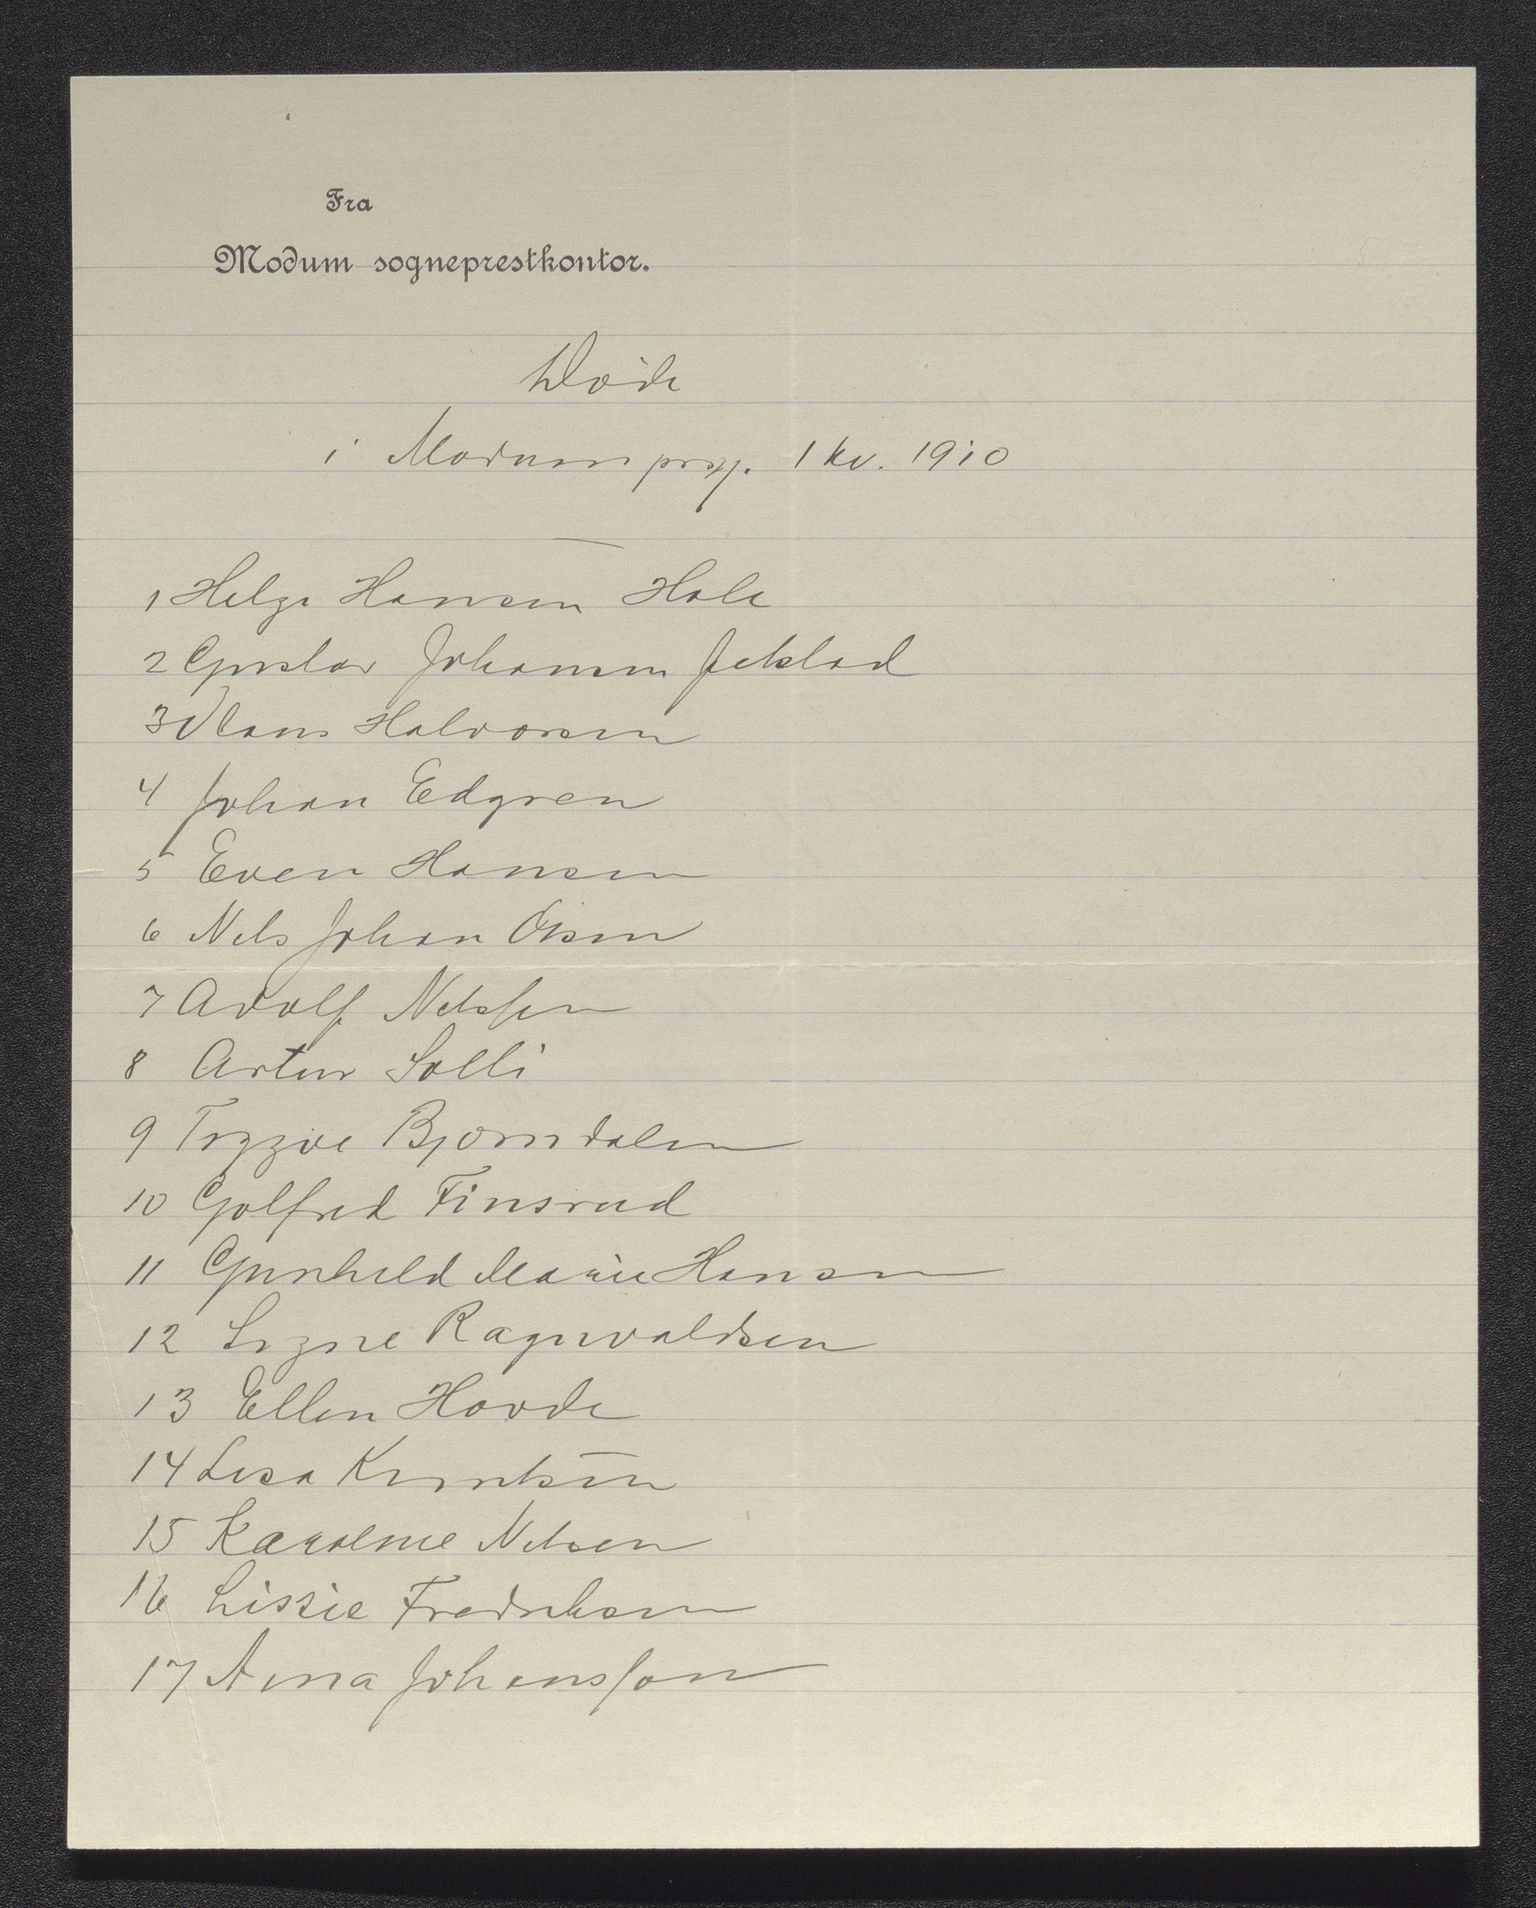 Fra
Modum sogneprestkontor.
Døde
i Modum prgj. 1 kv. 1910
1 Helge Hansen Hole
2 Gustav Johansen
3 Hans Halvorsen
4 Johan Edgren
5 Even Hansen
6 Nils Johan Olsen
7 Adolf Nilssen
8 Artur Solli
9 Trygve Bjørndalen
10 Golfred Finsrud
11 Gunhild Marie Hansen
12 Signe Ragnvaldsen
13 Ellen Hovde
14 Lisa Knudsen
15 Karoline Nilsen
16 Lissie Fredriksen
17 Anna Johansson